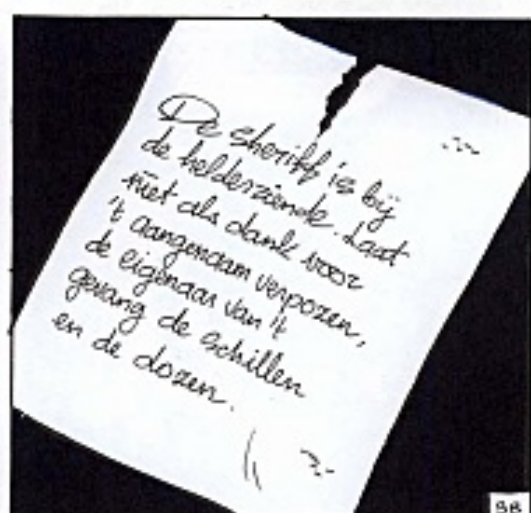 De sheriff is bij
de helderziende. Laat
niet als dank voor
't aangenaam verpozen,
de eigenaar van 't
gevang de schillen
en de dozen.
5B